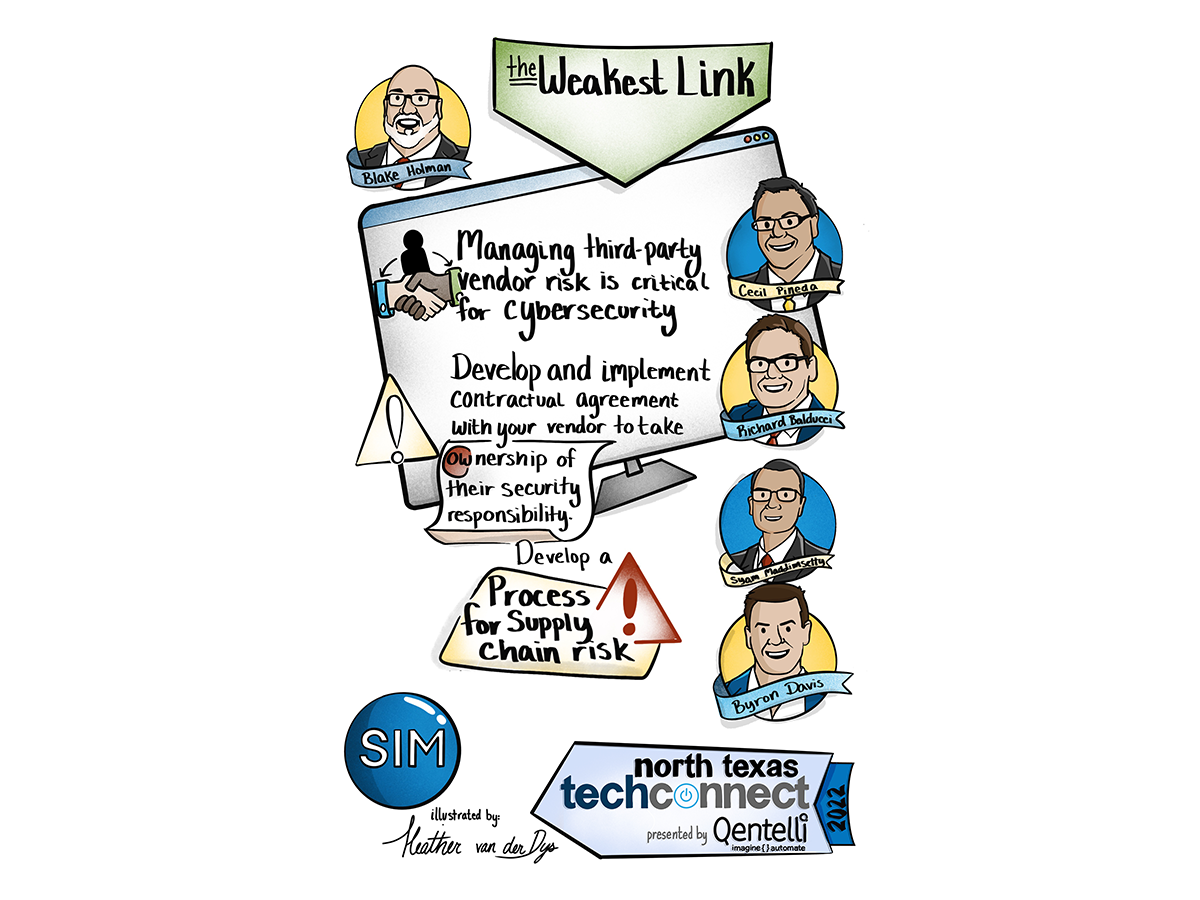 the Weakest Link
Blake Holman
Managing third-party
vendor risk is critical
for cybersecurity
Cecil Pineda
Develop and implement
contractual agreement
with your vendor to take
ownership of
their security
responsibility.
Richard Balducci
Develop a
Process
for Supply
chain risk
Syam Maddimsetty
Byron Davis
SIM
illustrated by:
Heather van der Dys
north texas
techconnect
presented by Qentelli
imagine { } automate
2022